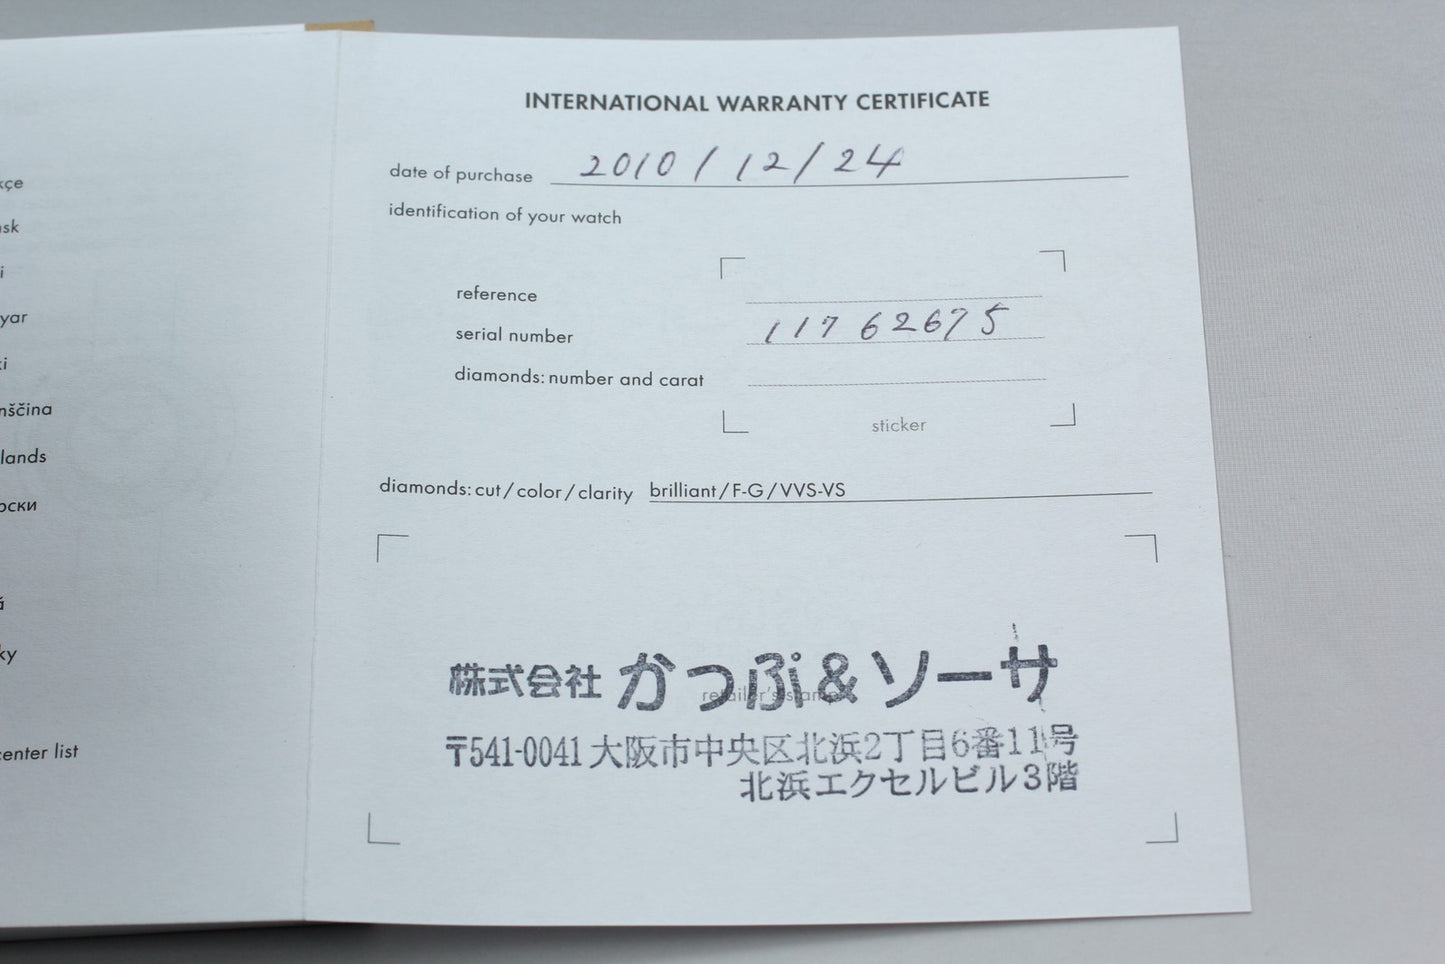 kçe
nsk
i
yar
ki
nščina
lands
рски
á
ky
center list
INTERNATIONAL WARRANTY CERTIFICATE
date of purchase 2010/12/24
identification of your watch
reference
serial number 11762675
diamonds: number and carat
sticker
diamonds: cut/color/clarity brilliant/F-G/VVS-VS
retailer's stamp
株式会社 かつぷ&ソーサ
〒541-0041 大阪市中央区北浜2丁目6番11号
北浜エクセルビル3階